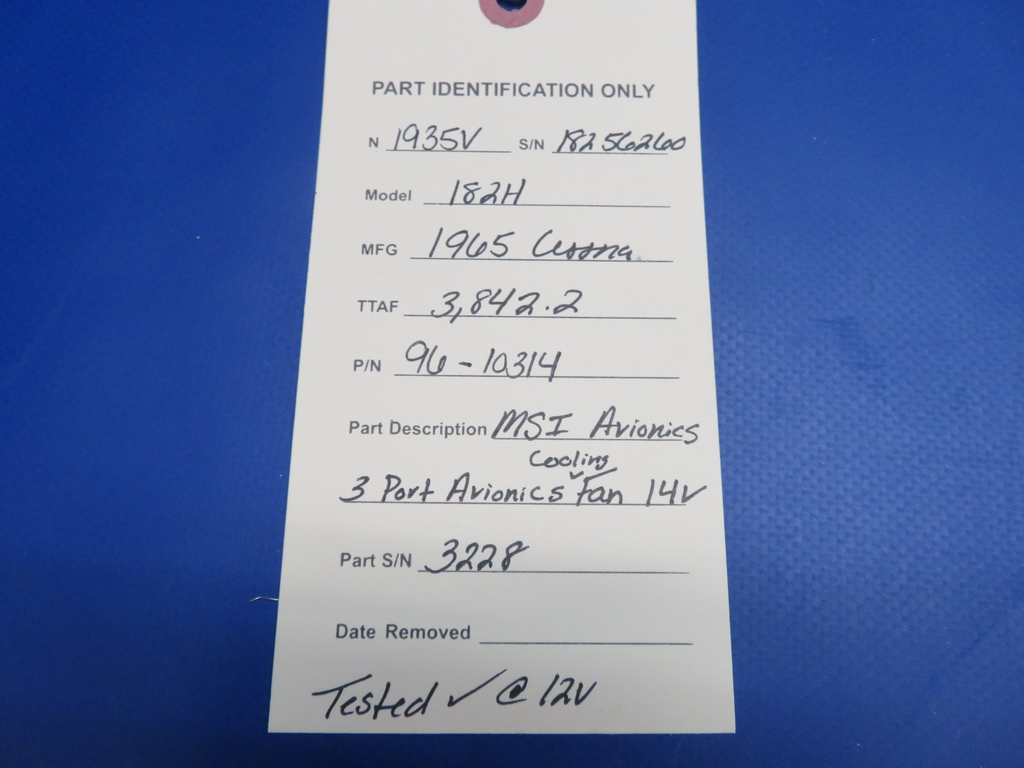 PART IDENTIFICATION ONLY
N 1935V S/N 18256260
Model 182H
MFG 1965 Cessna
TTAF 3,842.2
P/N 96-10314
Part Description MSI Avionics
Cooling
3 Port Avionics Fan 14V
Part S/N 3228
Date Removed
Tested ✓ @ 12V